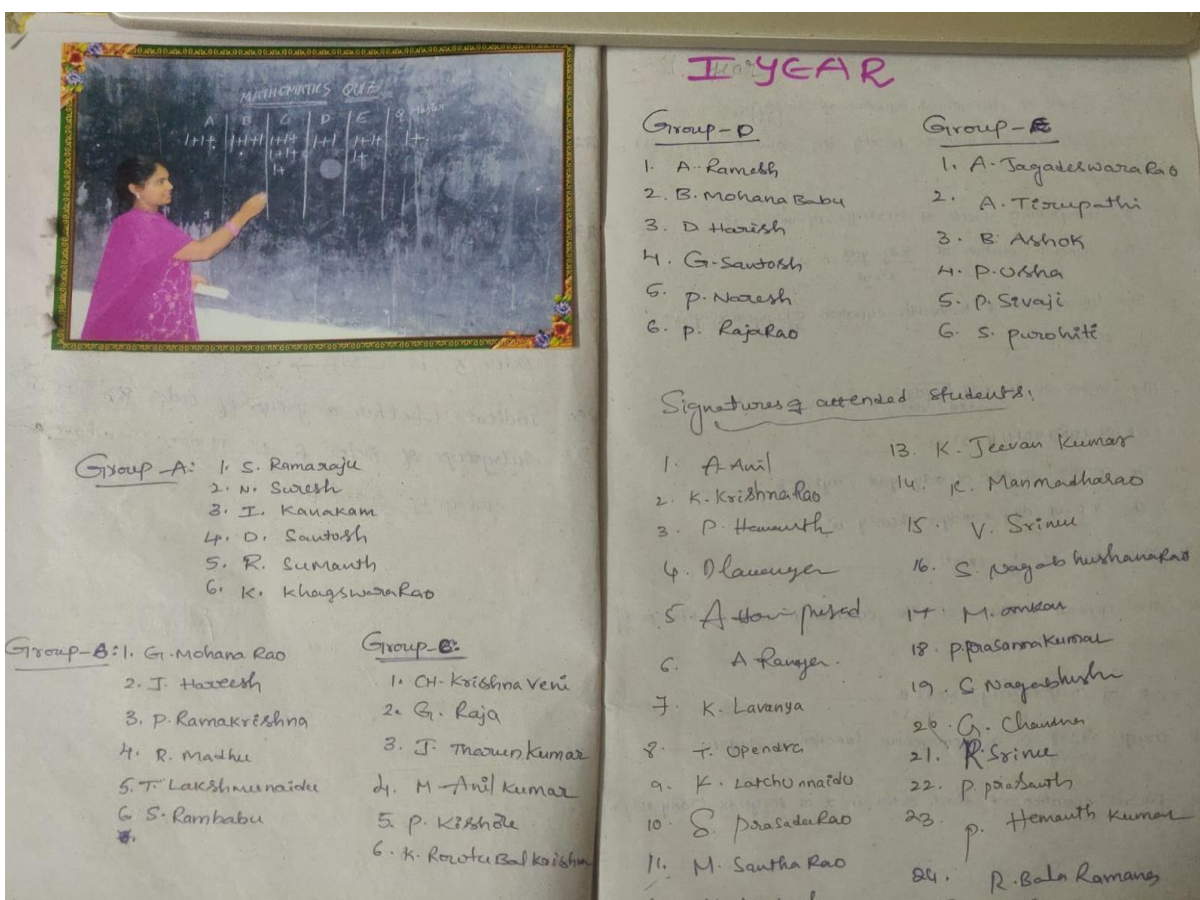 MATHEMATICS QUIZ
A B C D E Q Master
Group-A: 1. S. Ramaraju
2. N. Suresh
3. I. Kanakam
4. D. Santosh
5. R. Sumanth
6. K. KhagswaraRao
Group-B: 1. G. Mohana Rao
2. J. Hareesh
3. P. Ramakrishna
4. R. Madhu
5. T. Lakshmunaidu
6. S. Rambabu
Group-C:
1. CH- Krishna Veni
2. G. Raja
3. J. Tharun Kumar
4. M- Anil Kumar
5. P. Kishore
6. K. Rowtu Balkrishna
I YEAR
Group-D
1. A. Ramesh
2. B. Mohana Babu
3. D. Harish
4. G. Santosh
5. P. Naresh
6. P. RajaRao
Group-E
1. A. JagadeswaraRao
2. A. Tirupathi
3. B. Ashok
4. P. Usha
5. P. Sivaji
6. S. purohiti
Signatures of attended students:
1. A Anil
2. K. KrishnaRao
3. P. Hemanth
4. D
5. A
6. A
7. K. Lavanya
8. T. Upendra
9. K. Latchunnaidu
10. S. prasadaRao
11. M. Santha Rao
13. K. Jeevan Kumar
14. K. Manmadharao
15. V. Srinu
16. S. NagabhushanaRao
17. M. omkar
18. P. prasannaKumar
19. S Nagabhushn
20. G.
21. R. Srinu
22. P. prasanth
23. P. Hemanth Kumar
24. R. Bala